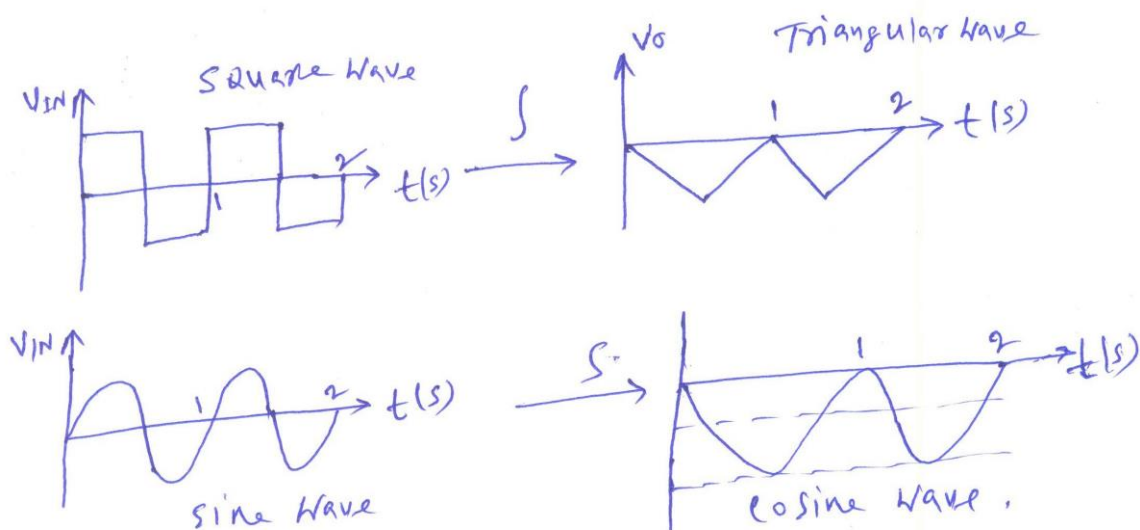 Square Wave
VIN
1
2
t(s)
∫
Triangular Wave
Vo
1
2
t(s)
VIN
1
2
t(s)
Sine Wave
∫
1
2
t(s)
Cosine Wave.